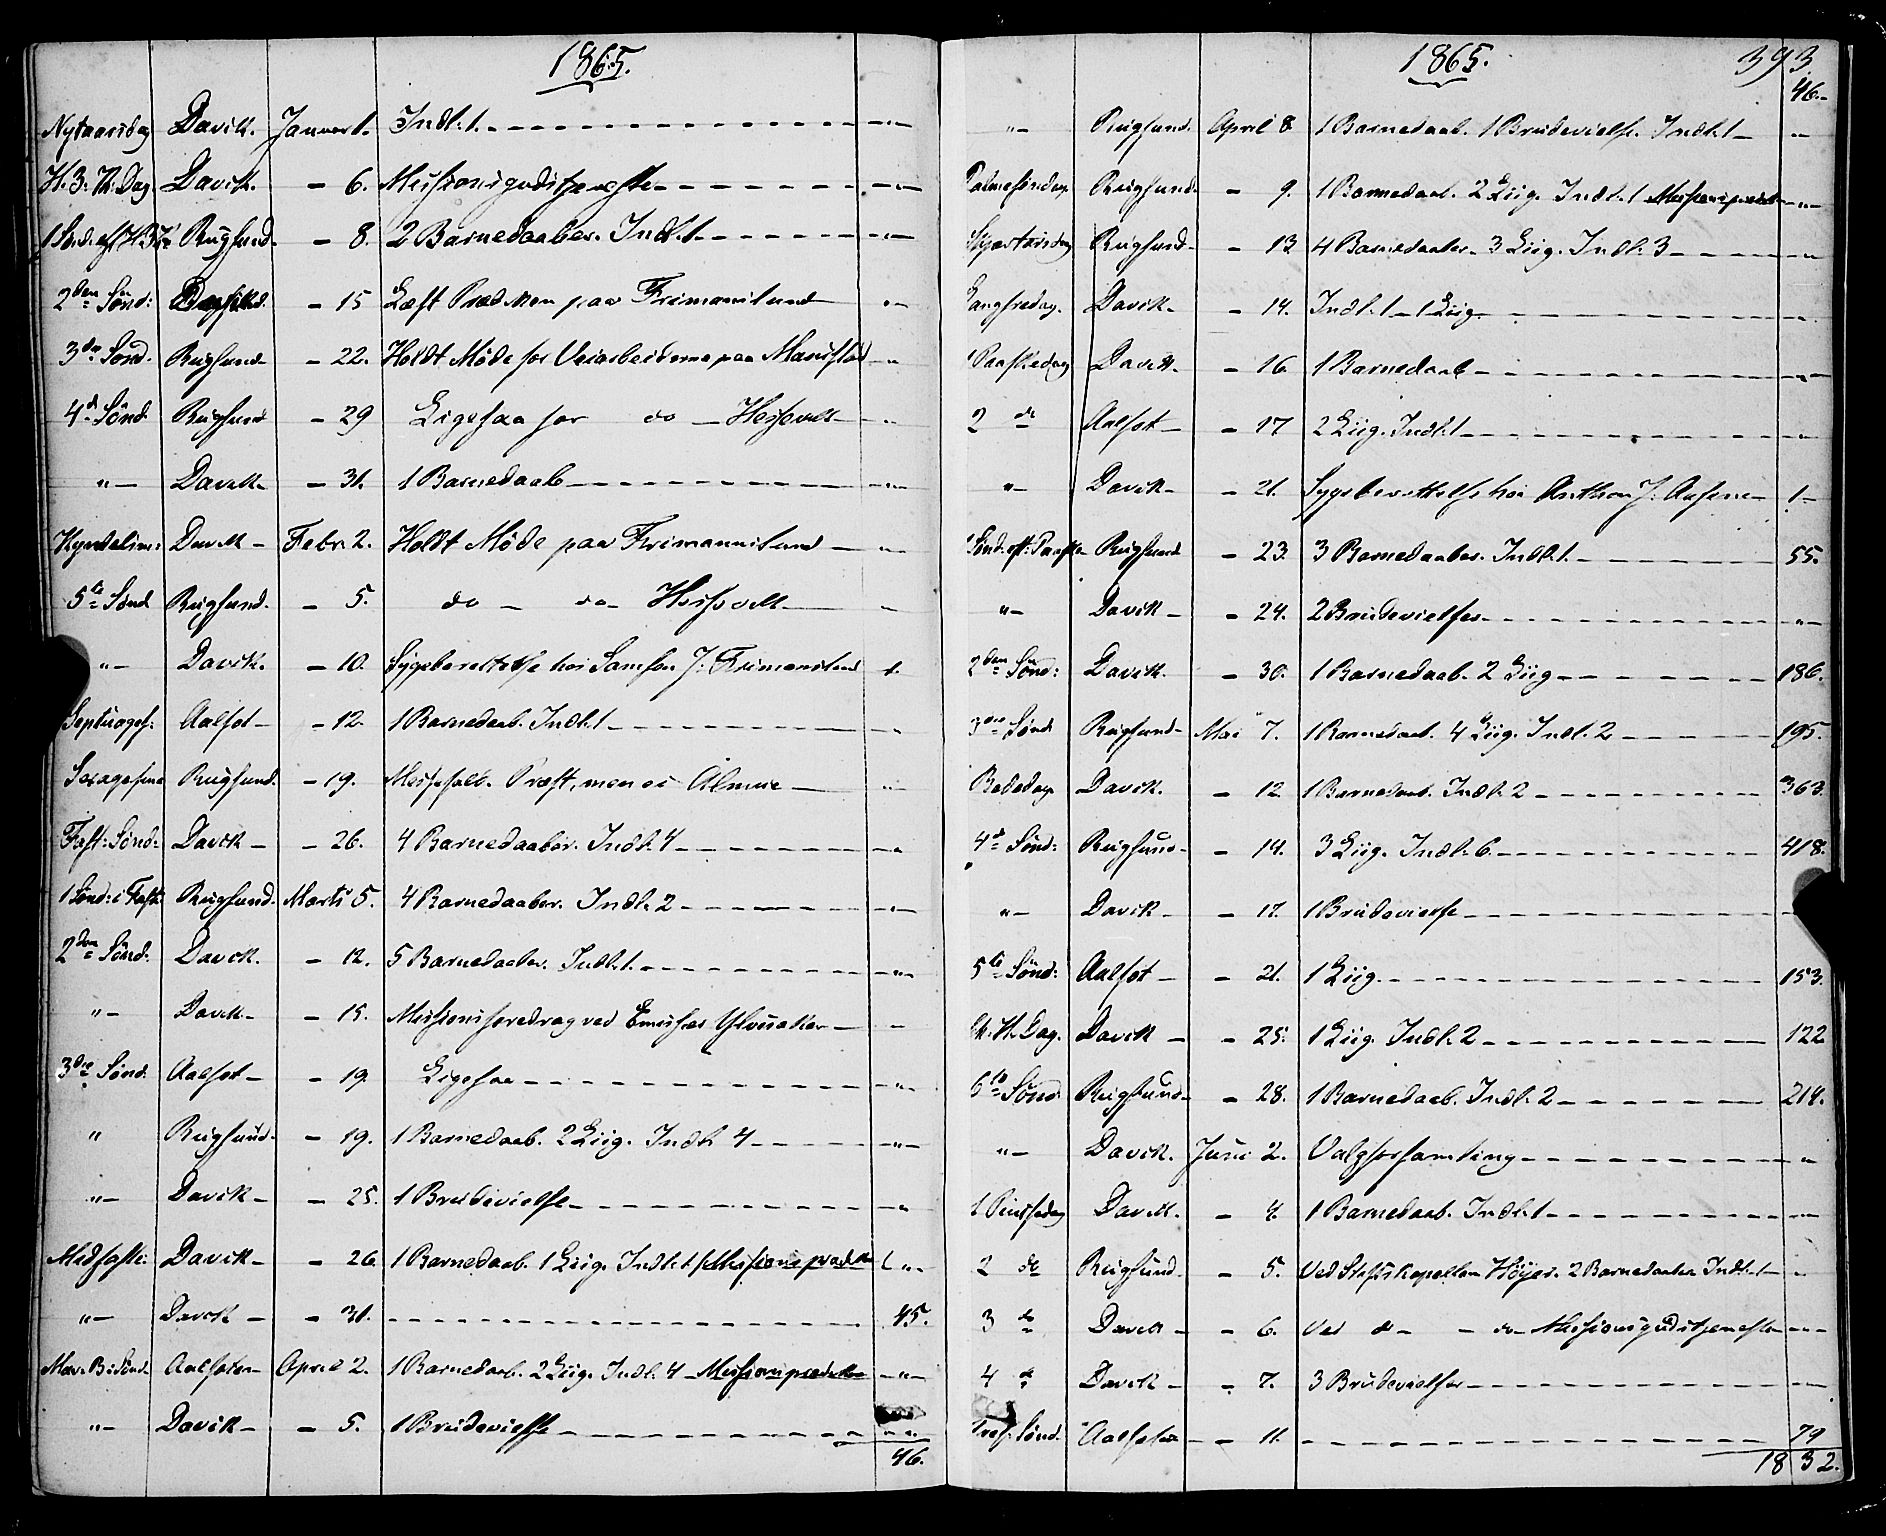 1865.
Nytaarsdag Davik. Januar 1. Indl. 1. „
H. 3. K. Dag. Davik. - 6. Missionsgudstjeneste „
1 Sønd. eft. H. 3 K. Rugsund. - 8. 2 Barnedaaber. Indl. 1. „
2den Sønd: - 15 Læst Prædiken paa Frimanslund „
3die Sønd. Rugsund - 22. Holdt Møde for Veiarbeiderne paa „
4de Sønd. Rugsund - 29 Ligesaa for do „
„ Davik - 31. 1 Barnedaab „
Kyndelms: Davik - Febr. 2. Holdt Møde paa Frimannslund „
5te Sønd Rugsund. - 5. do - do -
„ Davik. - 10. Sygeberettelse hos Samson J. Frimanslund 1.
Septuages: Aalfot - - 12. 1 Barnedaab. Indl. 1 „
Sexagesima Rugsund. - 19. Messefald. Præst, men ei Almue „
Fast: Sønd: Davik - - 26. 4 Barnedaaber. Indl. 4 „
1 Sønd: i Faste Rugsund. Marts 5. 4 Barnedaaber. Indl. 2 „
2den Sønd. Davik. - 12. 5 Barnedaaber. Indl. 1. „
„ Davik. - 15. Missionsforedrag ved Emissær Ylvisaker -
3die Sønd. Aalfot - - 19. Ligesaa „
„ Rugsund. - 19. 1 Barnedaab. 2 Liig. Indl. 4 „
„ Davik - - 25. 1 Brudevielse „
Midfaste. Davik - - 26. 1 Barnedaab. 1 Liig. Indl. 1 /Missionspræd. „
„ Davik - - 31. 45.
Mar. B. Sønd. Aalfoten April 2. 1 Barnedaab. 2 Liig. Indl. 4 - Missionspræd. „
„ Davik - - 5. 1 Brudevielse „
46.
1865. 393
46.
„ Rugsund. April 8 1 Barnedaab. 1 Brudevielse. Indl. 1 „
Palmesøndag Rugsund. - 9. 1 Barnedaab. 2 Liig. Indl. 1 Missionspræd. „
Skjærtorsdag Rugsund. - 13. 4 Barnedaaber. 3 Liig. Indl. 3 „
Langfredag. Davik - 14. Indl. 1 - 1 Liig. „
1 Paaskedag Davik. - 16. 1 Barnedaab „
2 de Aalfot - - 17 2 Liig. Indl. 1 „
„ Davik - - 21. Sygeberettelse hos Anthon J. 1
1 Sønd. eft: Paaske Rugsund - 23. 3 Barnedaaber. Indl. 1. 55.
„ Davik - - 24. 2 Brudevielser. „
2den Sønd: Davik. - 30. 1 Barnedaab. 2 Liig 186.
3die Sønd Rugsund. Mai 7. 1 Barnedaab. 4 Liig. Indl. 2 195.
Bededag Davik. - 12. 1 Barnedaab. Indl. 2 363.
4de Sønd: Rugsund. - 14. 3 Liig. Indl. 6. 418.
„ Davik - - 17. 1 Brudevielse
5te Sønd: Aalfot - - 21. 1 Liig. 153.
Ch. H. Dag. Davik - - 25. 1 Liig. Indl. 2 122
6te Sønd. Rugsund. - 28. 1 Barnedaab. Indl. 2 214.
„ Davik. Juni 2. Valgforsamling „
1 Pintsedag Davik. - 4. 1 Barnedaab. Indl. 1 „
2 de Rugsund. - 5. Ved Stiftskapellan Höyer. 2 Barnedaaber Indl. 1 „
3 de Davik - - 6. Ved do - do - Missionsgudstjeneste „
4 de Davik - - 7. 3 Brudevielser „
Tref. Sønd. Aalfoten - 11. 79
1832.